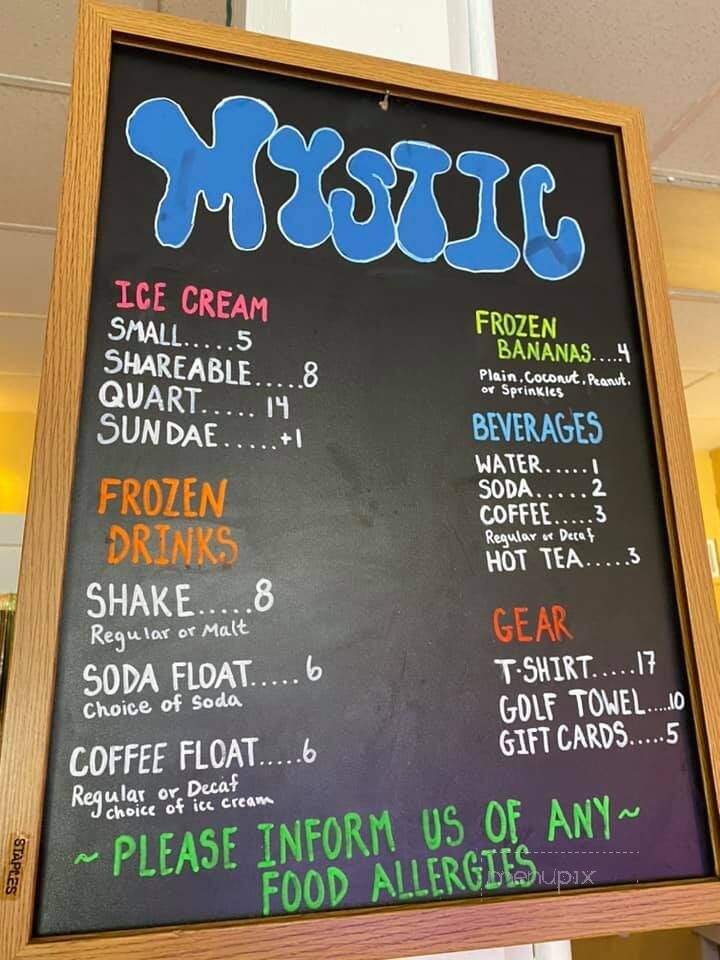 MYSTIC
ICE CREAM
SMALL.....5
SHAREABLE.....8
QUART..... 14
SUNDAE.....+1
FROZEN
DRINKS
SHAKE.....8
Regular or Malt
SODA FLOAT.....6
Choice of Soda
COFFEE FLOAT.....6
Regular or Decaf
choice of ice cream
FROZEN
BANANAS....4
Plain, Coconut, Peanut,
or Sprinkles
BEVERAGES
WATER.....1
SODA.....2
COFFEE.....3
Regular or Decaf
HOT TEA.....3
GEAR
T-SHIRT.....17
GOLF TOWEL.....10
GIFT CARDS.....5
~ PLEASE INFORM US OF ANY ~
FOOD ALLERGIES
menupix
STAPLES